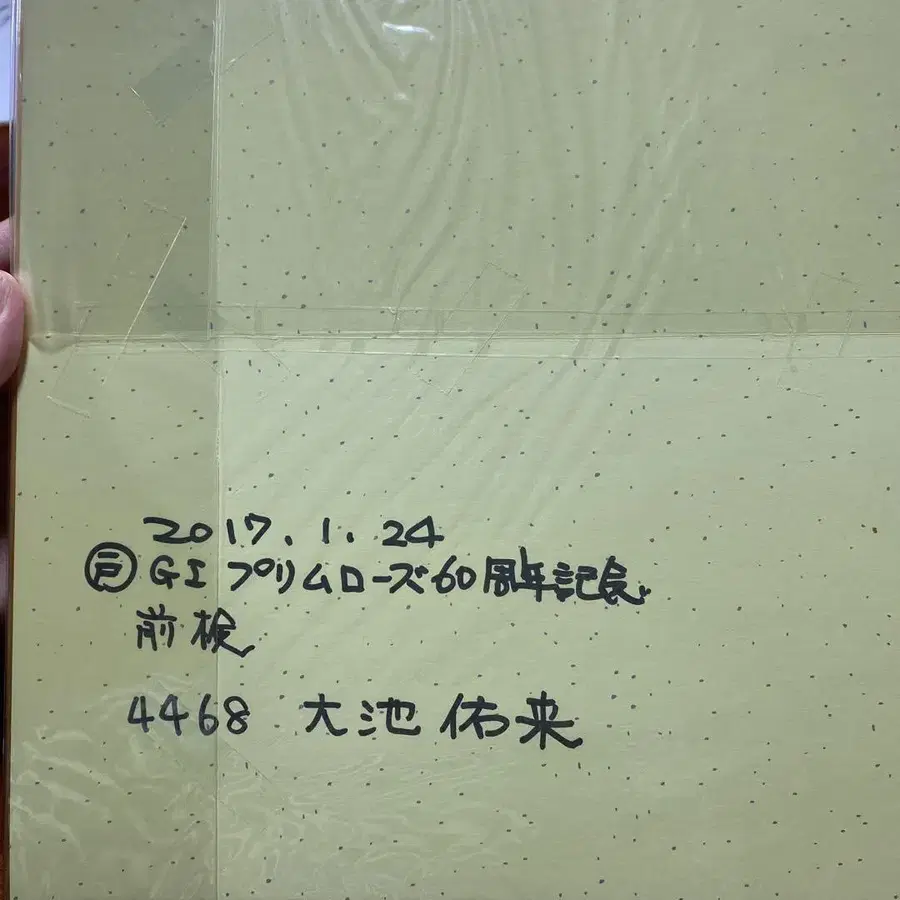 2017.1.24
戸 GI プリムローズ60周年記念
前検
4468 大池佑来